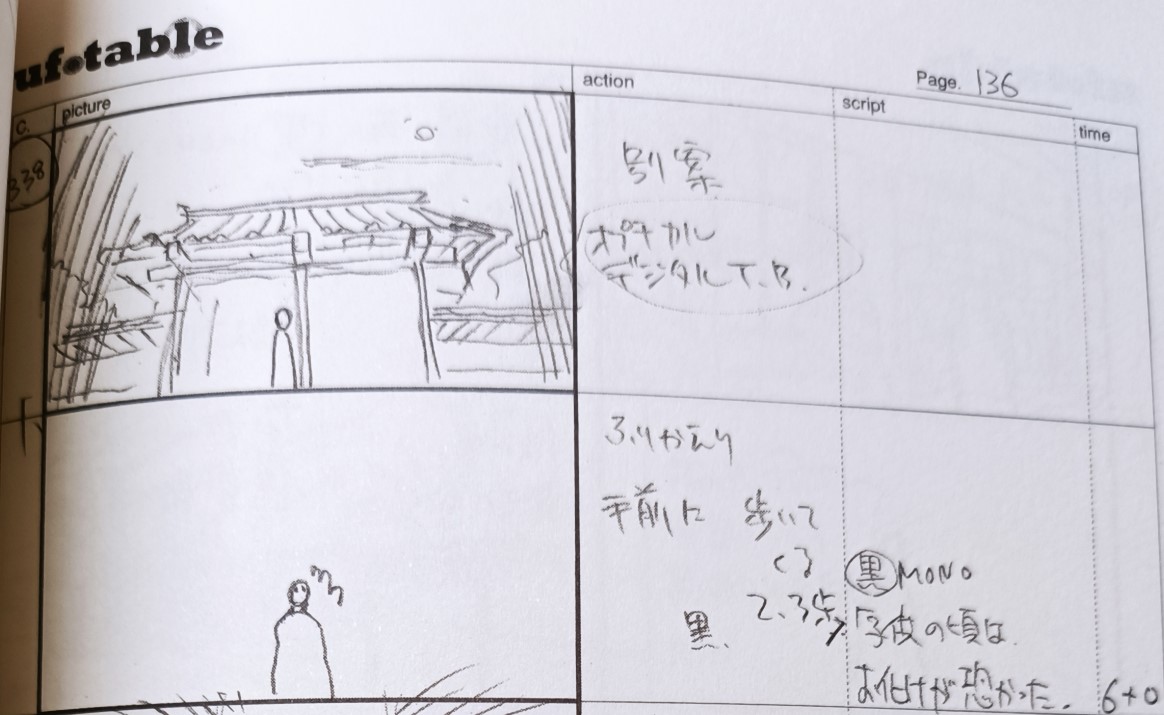 uf•table
Page. 136
C. picture action script time
338
別案
オプチカル
デジタルT.B.
ふりかえり
手前に 歩いて
くる
2、3歩
黒
黒 MONO
「子供の頃は
お化けが恐かった。
6+0